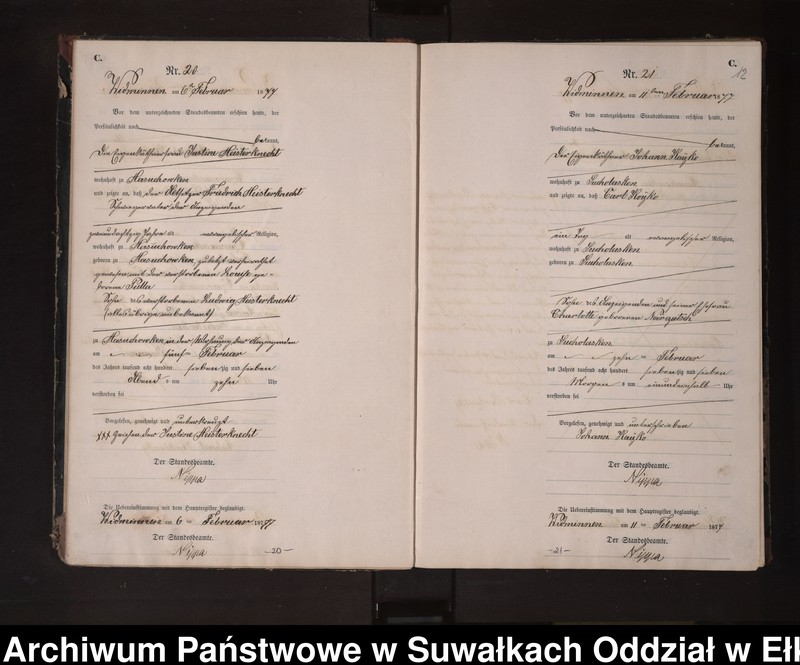 C.
Nr. 20
Widminnen am 6ten Februar 1877
Vor dem unterzeichneten Standesbeamten erschien heute, der
Persönlichkeit nach
bekannt,
Justine Meisterknecht
wohnhaft zu
und zeigte an, daß der Altsitzer Friedrich Meisterknecht
Schwiegervater der Anzeigenden
zweiundachtzig Jahre alt evangelischer Religion,
wohnhaft zu
geboren zu zuletzt verheirathet
gewesen mit der verstorbenen Louise ge-
borene
Sohn des verstorbenen Ludwig Meisterknecht
(alles übrige unbekannt)
zu in der Wohnung der Anzeigenden
am fünf ten Februar
des Jahres tausend acht hundert siebenzig und sieben
Abend s um zehn Uhr
verstorben sei
Vorgelesen, genehmigt und unterkreuzt
+++ Zeichen der Justine Meisterknecht
Der Standesbeamte.
Nippa
Die Uebereinstimmung mit dem Hauptregister beglaubigt.
Widminnen am 6 ten Februar 1877
Der Standesbeamte.
Nippa
—20—
C.
12
Nr. 21
Widminnen am 11ten Februar 1877
Vor dem unterzeichneten Standesbeamten erschien heute, der
Persönlichkeit nach
bekannt,
Der Eigenkäthner Johann
wohnhaft zu Sucholasken
und zeigte an, daß Carl
ein Tag alt evangelischer Religion,
wohnhaft zu Sucholasken
geboren zu Sucholasken
Sohn des Anzeigenden und seiner Ehefrau
Charlotte geborenen
zu Sucholasken
am zehn ten Februar
des Jahres tausend acht hundert siebenzig und sieben
Morgen s um einundeinhalb Uhr
verstorben sei
Vorgelesen, genehmigt und unterschrieben
Johann
Der Standesbeamte.
Nippa
Die Uebereinstimmung mit dem Hauptregister beglaubigt.
Widminnen am 11 ten Februar 1877
Der Standesbeamte.
Nippa
—21—
Archiwum Państwowe w Suwałkach Oddział w Eł